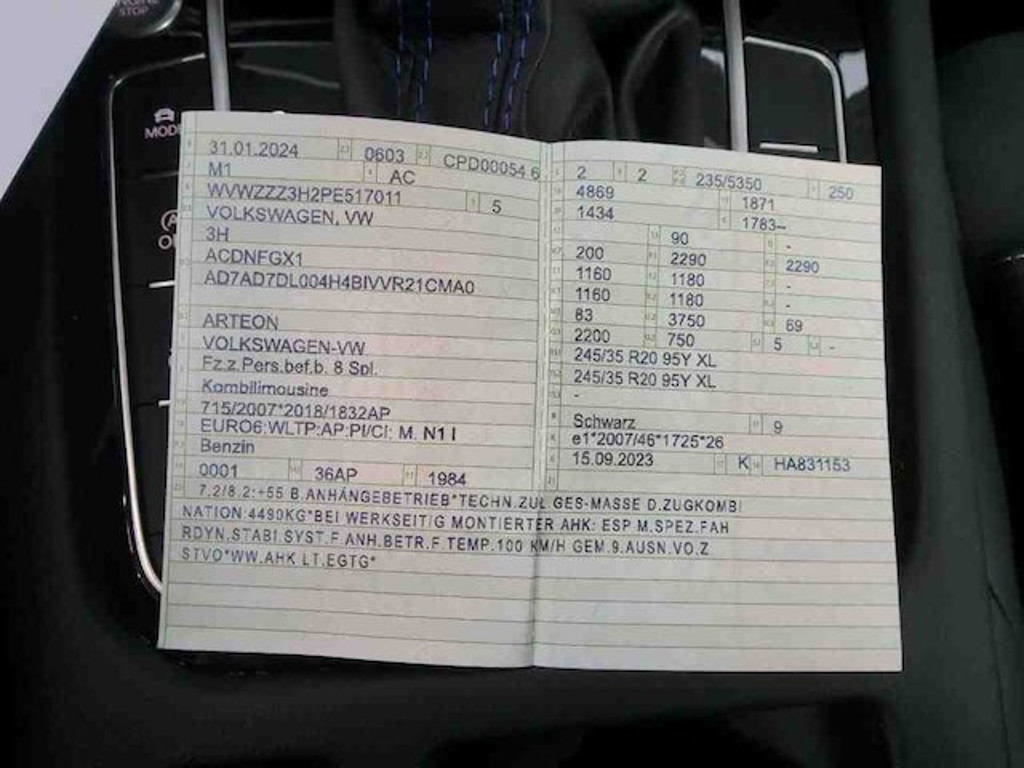 STOP
31.01.2024 0603 CPD00054 6
M1 AC
WVWZZZ3H2PE517011 5
VOLKSWAGEN, VW
3H
ACDNFGX1
AD7AD7DL004H4BIVVR21CMA0
ARTEON
VOLKSWAGEN-VW
Fz.z.Pers.bef.b. 8 Spl.
Kombilimousine
715/2007*2018/1832AP
EURO6:WLTP:AP:PI/CI: M, N1 I
Benzin
0001 36AP 1984
2 2 235/5350 250
4869 1871
1434 1783–
90 -
200 2290 2290
1160 1180 -
1160 1180 -
83 3750 69
2200 750 5 -
245/35 R20 95Y XL
245/35 R20 95Y XL
-
Schwarz 9
e1*2007/46*1725*26
15.09.2023 K HA831153
7.2/8.2:+55 B.ANHÄNGEBETRIEB*TECHN.ZUL GES-MASSE D.ZUGKOMBI
NATION:4490KG*BEI WERKSEITIG MONTIERTER AHK: ESP M.SPEZ.FAH
RDYN.STABI.SYST.F.ANH.BETR.F.TEMP.100 KM/H GEM.9.AUSN.VO.Z
STVO*WW.AHK LT.EGTG*